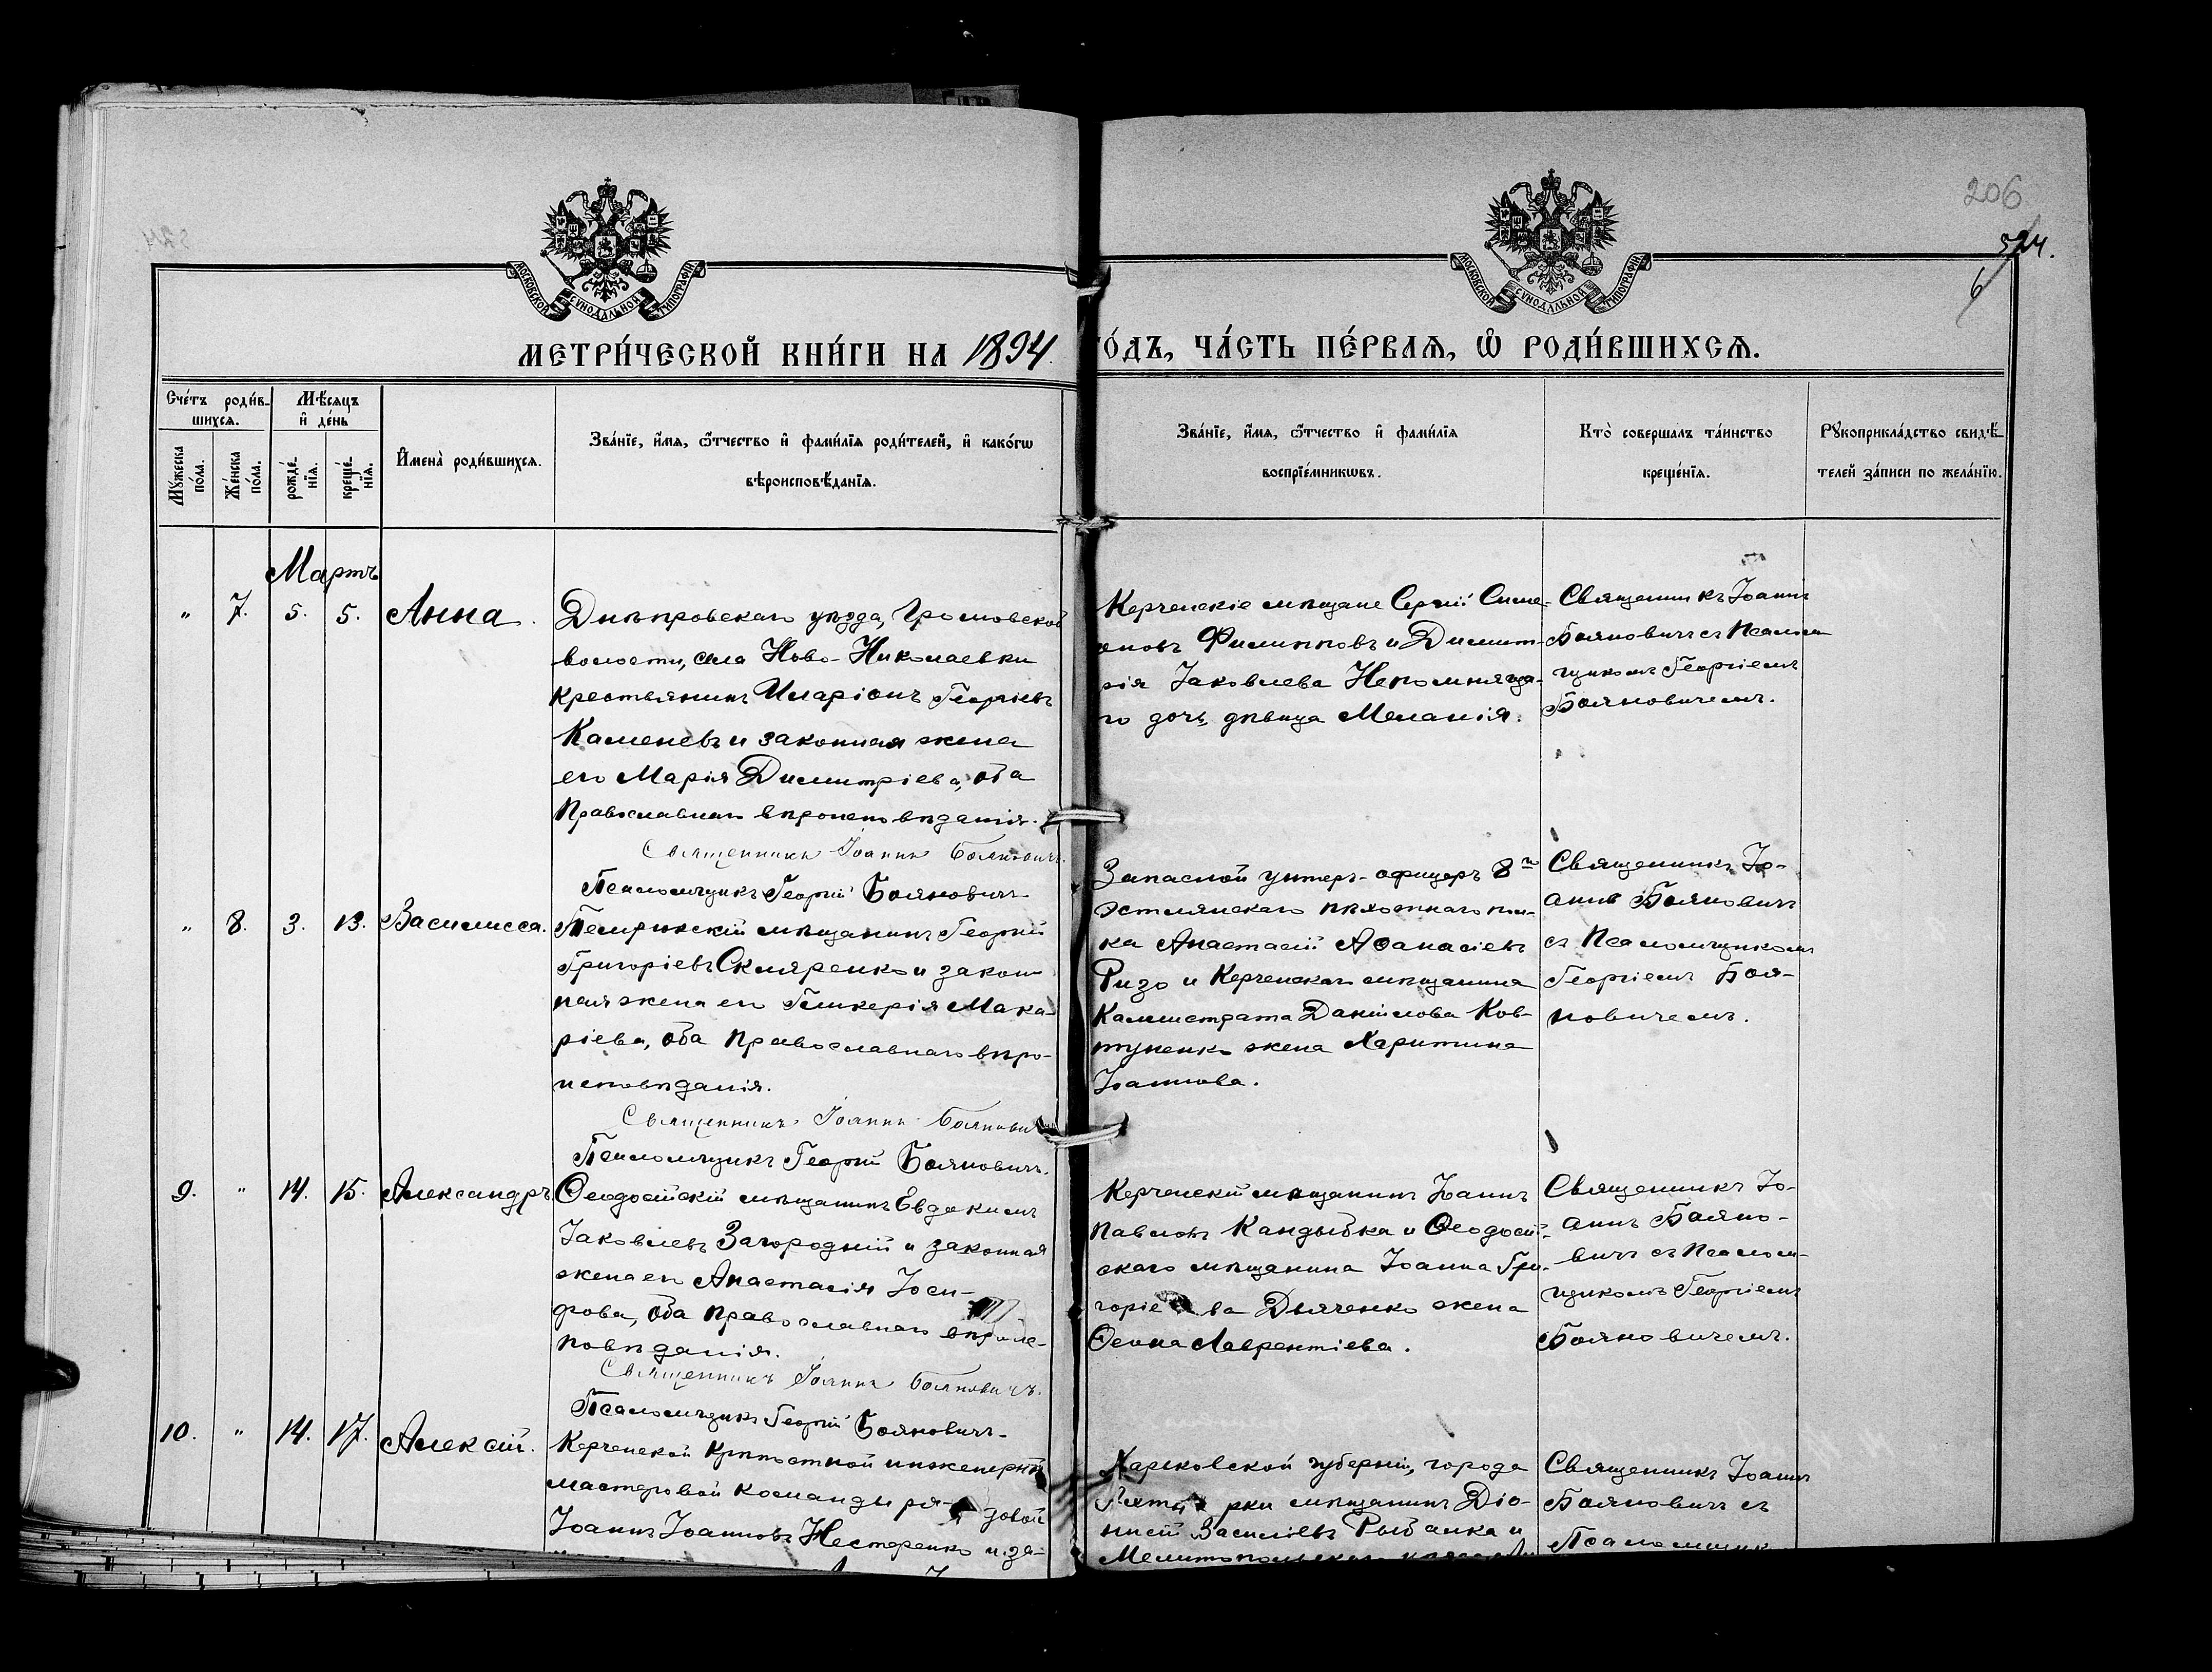 206
524.
6
МОСКОВСКОЙ СУНОДАЛЬНОЙ ТИПОГРАФІИ
МОСКОВСКОЙ СУНОДАЛЬНОЙ ТИПОГРАФІИ
МЕТРИ́ЧЕСКОЙ КНИ́ГИ НА 1894. ГО́ДЪ, ЧА́СТЬ ПЕ́РВАЯ, Ѡ҆ РОДИ́ВШИХСЯ.
Сче́тъ роди́в-
шихся.
Мѣ́сяцъ
и҆ де́нь
Мꙋ́жеска по́ла.
Же́нска по́ла.
рожде́-нїя.
креще́-нїя.
И҆мена̀ роди́вшихся.
Зва́нїе, и҆́мя, ѻ҆́тчество и҆ фами́лїя роди́телей, и҆ како́гѡ
вѣроисповѣ́данїя.
Зва́нїе, и҆́мя, ѻ҆́тчество и҆ фами́лїя
воспрїе́мникѡвъ.
Кто̀ соверша́лъ та́инство
креще́нїя.
Рꙋкоприкла́дство свидѣ́-
телей за́писи по жела́нїю.
Мартъ
„ 7. 5. 5. Анна.
Днѣпровскаго уѣзда, Громовской
волости, села Ново-Николаевки
крестьянинъ Иларіонъ Георгіевъ
Каменевъ и законная жена
его Марія Димитріева, оба
Православнаго вѣроисповѣданія.
Священникъ Іоаннъ Бояновичъ.
Псаломщикъ Георгій Бояновичъ
Керченскіе мѣщане Сергій Симе-
оновъ Филипповъ и Димит-
рія Іаковлева Непомняща-
го дочь, дѣвица Меланія.
Священникъ Іоаннъ
Бояновичъ съ Псалом
щикомъ Георгіемъ
Бояновичемъ.
„ 8. 3. 13. Василисса.
мѣщанинъ Георгій
Григоріевъ Скляренко и закон-
ная жена его Гликерія Мака-
ріева, оба Православнаго вѣро-
исповѣданія.
Священникъ Іоаннъ Боянови
Псаломщикъ Георгій Бояновичъ.
Запасной унтеръ-офицеръ 8го
Эстляндскаго пѣхотнаго пол-
ка Анастасій Аѳанасіевъ
Ризо и Керченскаго мѣщанина
Каллистрата Даніилова Ков-
туненко жена Харитина
Іоаннова.
Священникъ Іо-
аннъ Бояновичъ
съ Псаломщикомъ
Георгіемъ Боя-
новичемъ.
9. „ 14. 15. Александръ.
Ѳеодосійскій мѣщанинъ Евдокимъ
Іаковлевъ Загородній и законная
жена его Анастасія Іоси-
фова, оба Православнаго вѣроис-
повѣданія.
Священникъ Іоаннъ Бояновичъ.
Псаломщикъ Георгій Бояновичъ.
Керченскій мѣщанинъ Іоаннъ
Павловъ Кандыбка и Ѳеодосій-
скаго мѣщанина Іоанна Гри-
горіева Дьяченко жена
Ѳеона Лаврентіева.
Священникъ Іо-
аннъ Бояно-
вичъ съ Псалом-
щикомъ Георгіемъ
Бояновичемъ.
10. „ 14. 17. Алексій.
Керченской Крѣпостной инженерной
мастеровой команды ря-довой
Іоаннъ Іоанновъ Нестеренко и за-
Харьковской губерніи, города
мѣщанинъ Діо-
нисій Василіевъ Рыбалка и
Мелитопольскаго
Священникъ Іоаннъ
Бояновичъ съ
Псаломщик